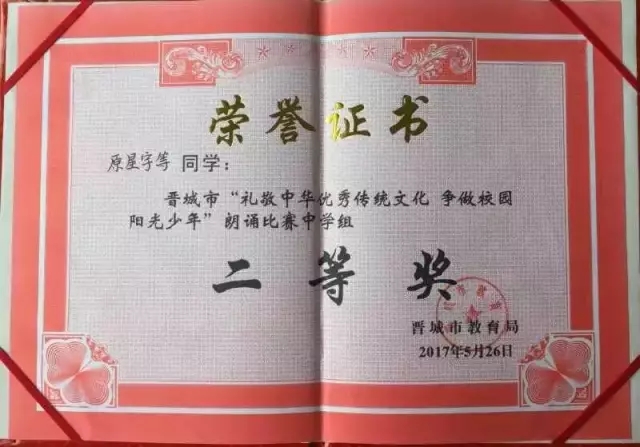 荣誉证书
原星宇等 同学：
晋城市“礼敬中华优秀传统文化 争做校园
阳光少年”朗诵比赛中学组
二等奖
晋城市教育局
2017年5月26日